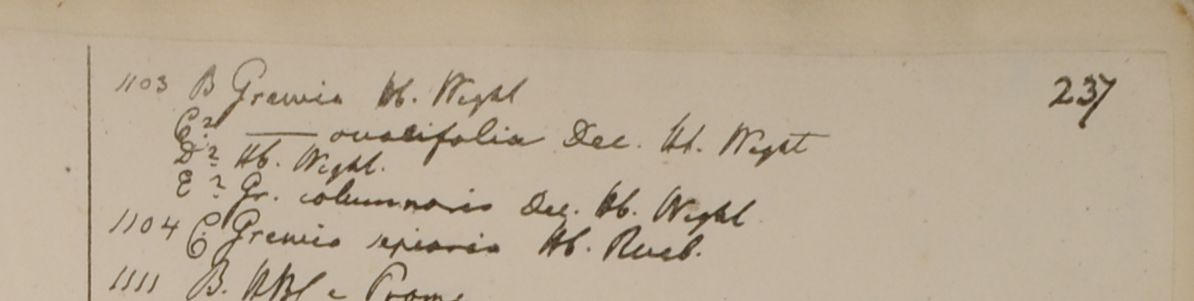 237
1103 B Grewia Hb. Wight
C? —— ovalifolia Dec. Hb. Wight
D? Hb. Wight.
E? Gr. columnaris Dec. Hb. Wight
1104 C Grewia sepiaria Hb. Roxb.
1111 B. HBC e